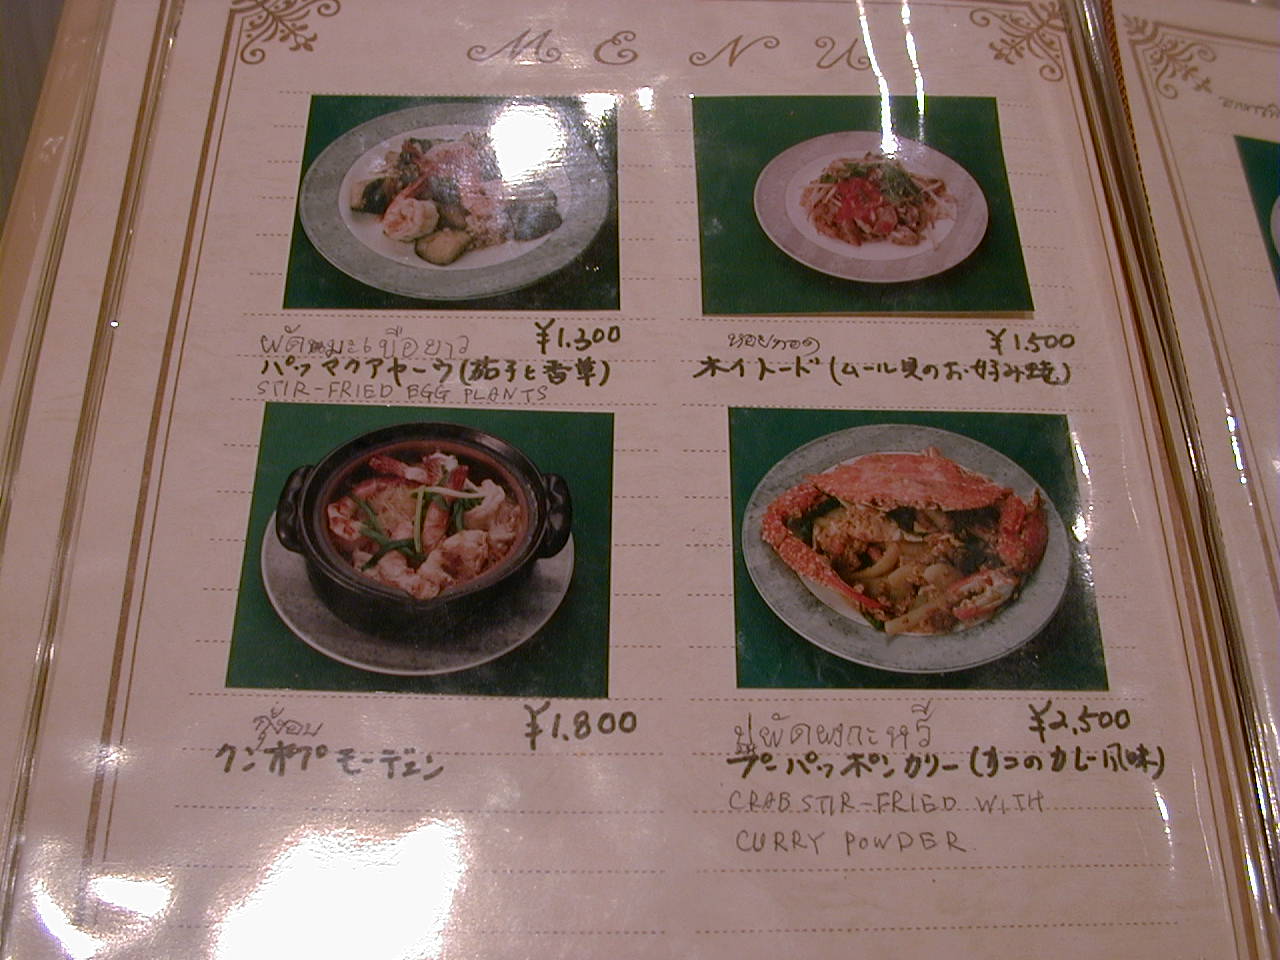 MENU
ผัดมะเขือยาว ¥1.300
パッマクアヤーウ(茄子と香草)
STIR-FRIED EGG PLANTS
หอยทอด ¥1.500
ホイトード(ムール貝のお好み焼)
กุ้งอบ ¥1.800
クンオプモーディン
ปูผัดผงกะหรี่ ¥2,500
プーパッポンカリー(カニのカレー風味)
CRAB STIR-FRIED WITH
CURRY POWDER